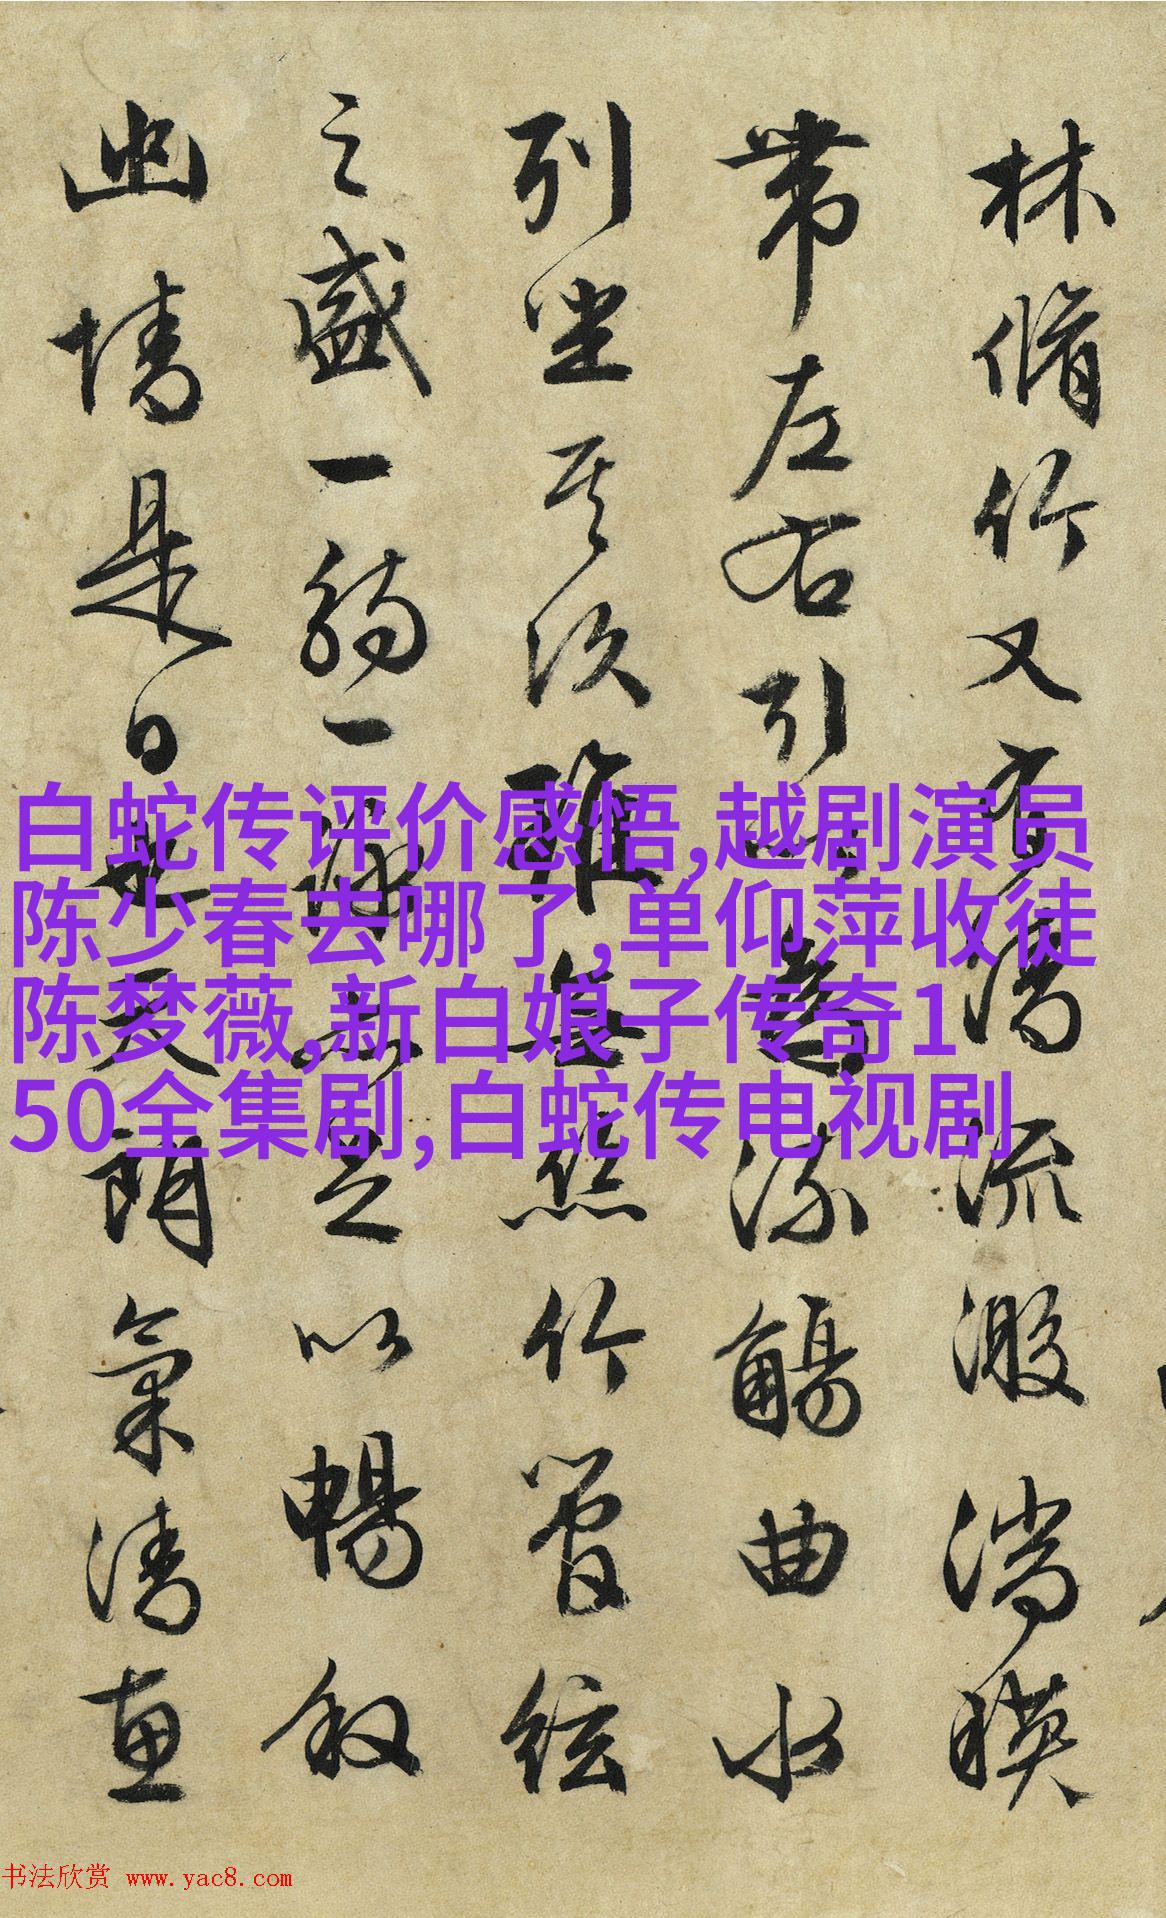 林脩竹又有清流激湍暎
帶左右引以為流觴曲水
列坐其次雖無絲竹管絃
之盛一觴一詠亦足以暢叙
幽情是日也天朗氣清惠
白蛇传评价感悟,越剧演员
陈少春去哪了,单仰萍收徒
陈梦薇,新白娘子传奇1
50全集剧,白蛇传电视剧
书法欣赏 www.yac8.com